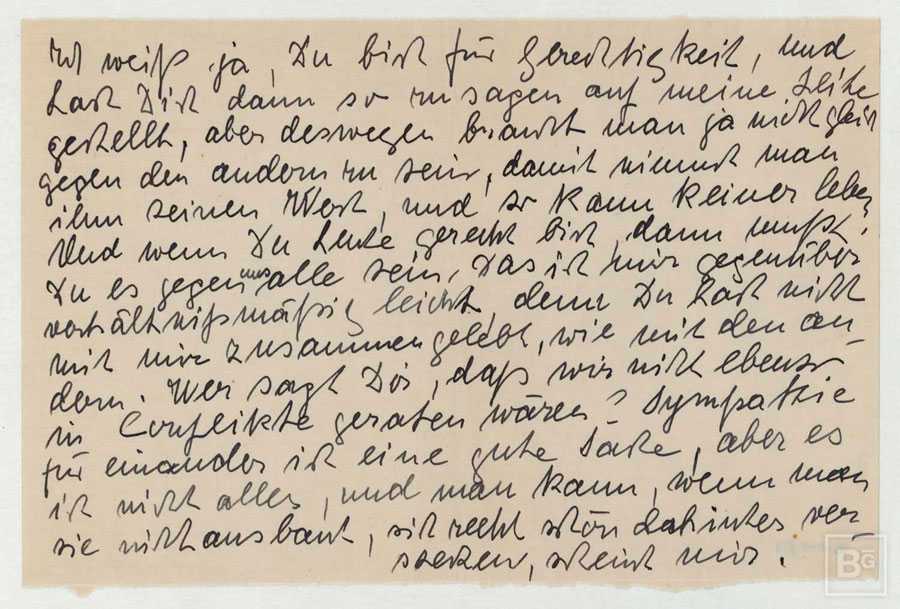 Ich weiß ja, Du bist für Gerechtigkeit, und
hast Dich dann so zu sagen auf meine Seite
gestellt, aber deswegen braucht man ja nicht gleich
gegen den andern zu sein, damit nimmt man
ihm seinen Wert, und so kann keiner leben.
Und wenn Du heute gerecht bist, dann mußt
Du es gegen uns alle sein. Das ist mir gegenüber
verhältnißmäßig leicht, denn Du hast nicht
mit mir zusammen gelebt, wie mit den an
dern. Wer sagt Dir, daß wir nicht ebenso
in Conflikte geraten wären? Sympathie
für einander ist eine gute Sache, aber es
ist nicht alles, und man kann, wenn man
sie nicht ausbaut, sich recht schön dahinter ver
stecken, scheint mir.
BG